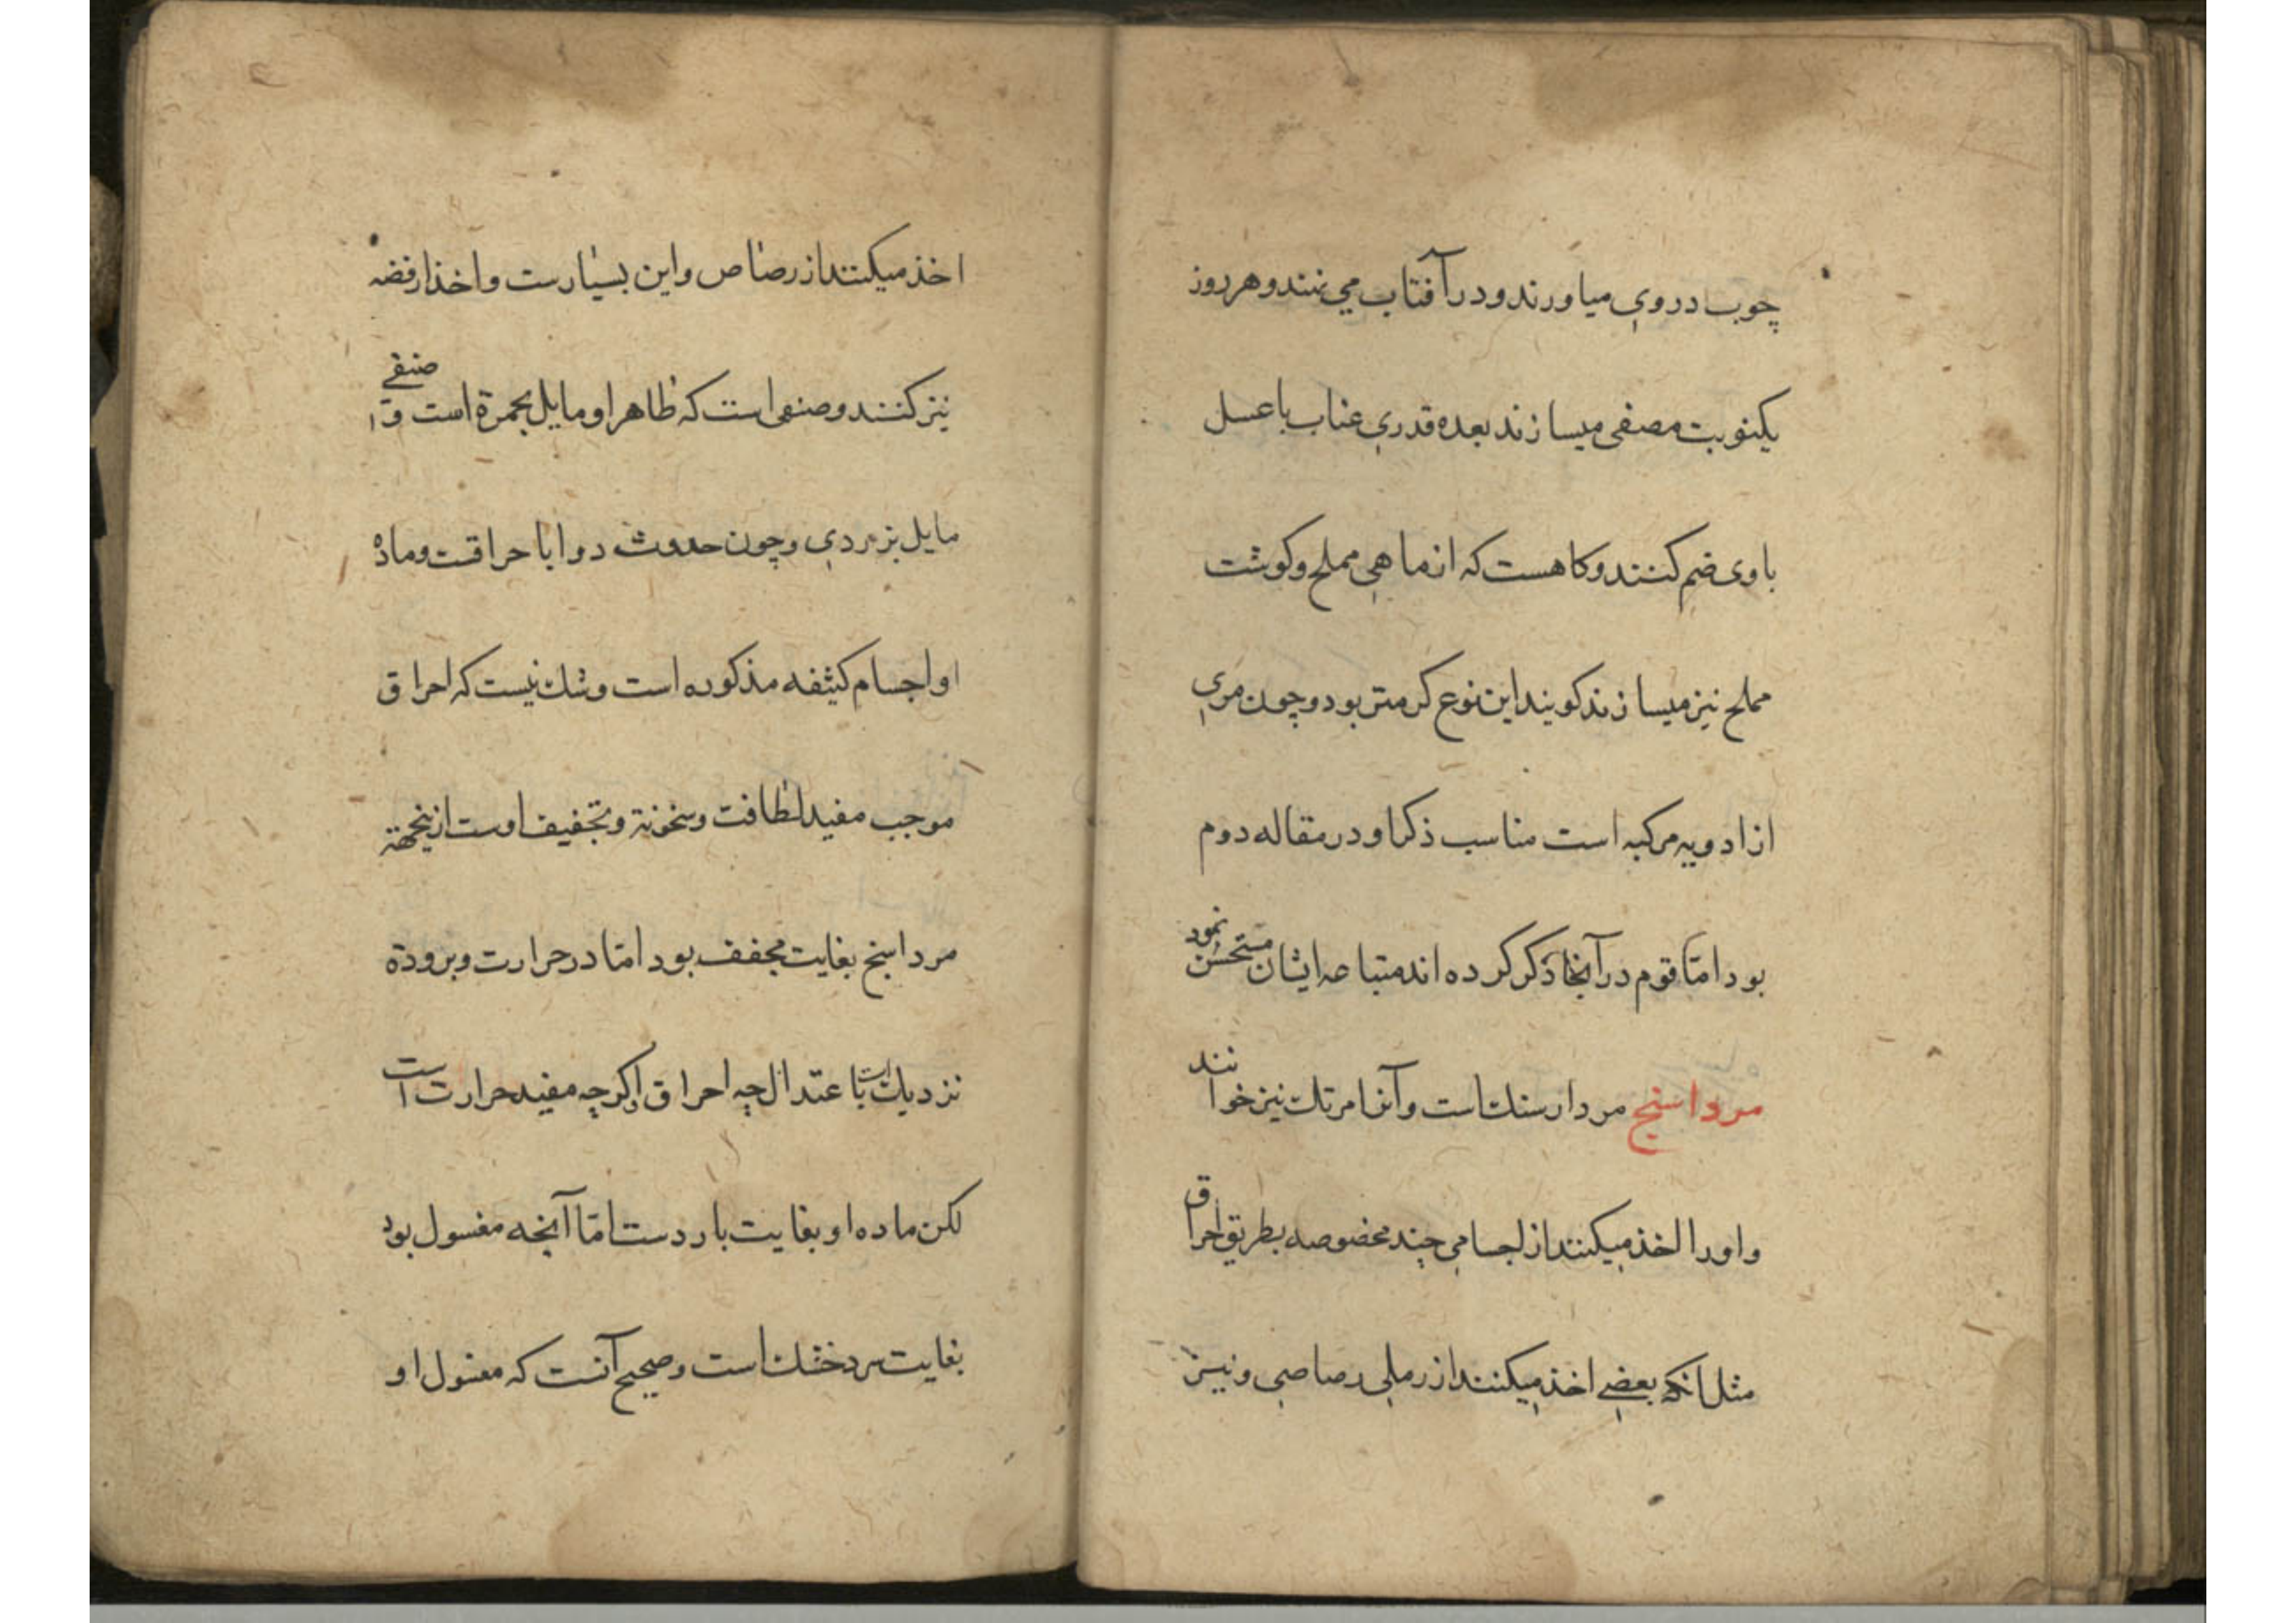 چوب در وی میاورند و در آفتاب می نهند و هر روز
یکنوبت مصفی میسازند بعده قدری عناب با عسل
با وی ضم کنند و کاهست که از ماهی مملح و کوشت
مملح نیز میسازند کویند این نوع کرمتر بود و چون مری
از ادویه مرکبه است مناسب ذکر او در مقاله دوم
بود امّا قوم در آنجا ذکر کرده اند متباعه ایشان مستحسن نمود
مرداسنج مردارسنک است و آنرا مرتک نیز خوانند
و اورا اخذ میکنند از اجسامی چند مخصوصه بطریق احراق
مثل انکه بعضی اخذ میکنند از رملی رصاصی و نیز
اخذ میکنند از رصاص و این بسیارست و اخذ از فضه
نیز کنند و صنفی است که ظاهر او مایل بحمرة است و صنفی
مایل بزردی و چون حدوث دوا با حراقت و ماده
او اجسام کثیفه مذکوره است و شک نیست که احراق
موجب مفید لطافت و سخونة و تجفیف اوست ازینجهة
مرداسنج بغایت مجفف بود امّا در حرارت و برودة
نزدیک است باعتدال چه احراق اکرچه مفید حرارت است
لکن ماده او بغایت باردست امّا آنچه مغسول بود
بغایت سرد خشک است و صحیح آنست که مغسول او